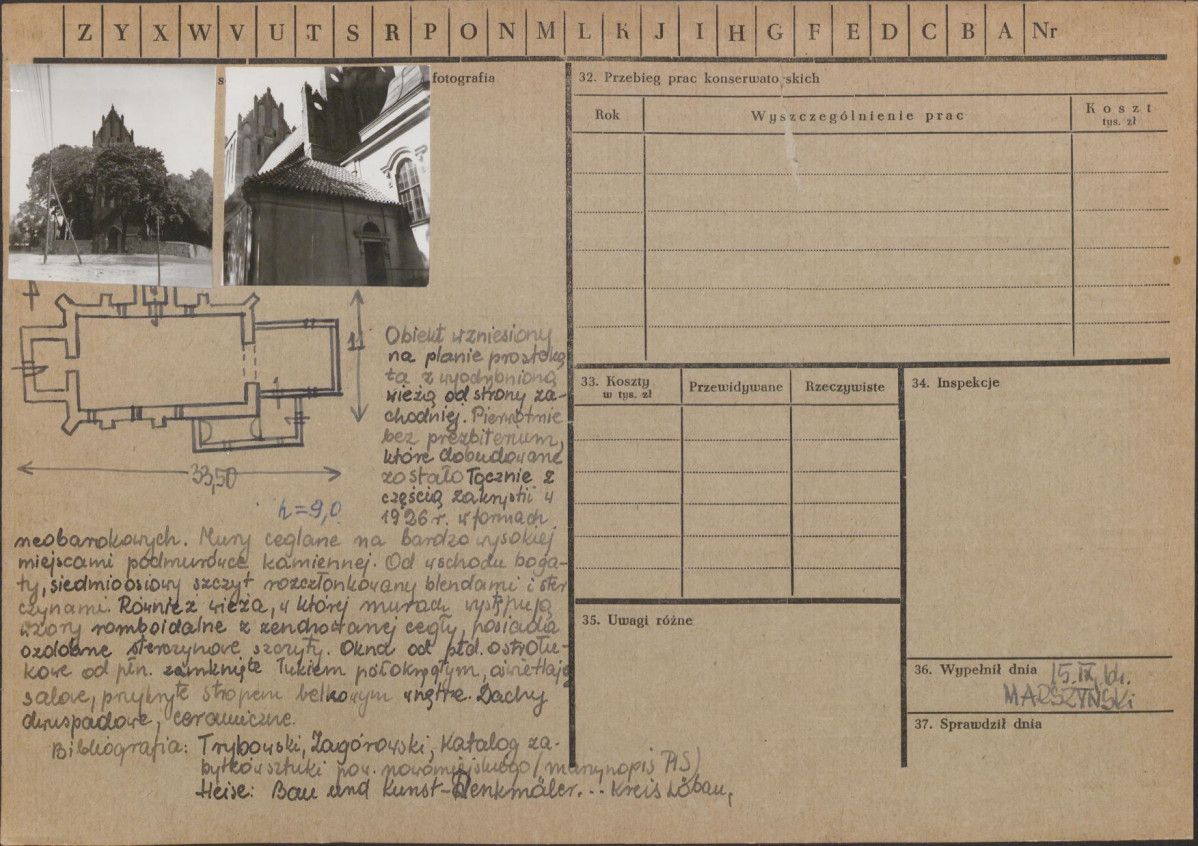 Z Y X W V U T S R P O N M L K J I H G F E D C B A Nr
s
fotografia
11
33,50
h = 9,0
Obiekt wzniesiony
na planie prostoką
ta z wyodrębnioną
wieżą od strony za-
chodniej. Pierwotnie
bez prezbiterium,
które dobudowane
zostało łącznie z
częścią zakrystii w
1926 r. w formach
neobarokowych. Mury ceglane na bardzo wysokiej
miejscami podmurówce kamiennej. Od wschodu boga-
ty, siedmioosiowy szczyt rozczłonkowany blendami i ster
czynami. Również wieża, w której murach występują
wzory romboidalne z zendrowanej cegły, posiada
ozdobne sterczynowe szczyty. Okna od płd. ostrołu-
kowe od płn. zamknięte łukiem półokrągłym, oświetlają
salowe, przykryte stropem belkowym wnętrze. Dachy
dwuspadowe, ceramiczne.
Bibliografia: Trybowski, Zagórowski, Katalog za-
bytków sztuki pow. nowomiejskiego (maszynopis PIS)
Heise: Bau und Kunst-Denkmäler... Kreis Löbau,
32. Przebieg prac konserwatorskich
Rok
Wyszczególnienie prac
Koszt
tys. zł
33. Koszty
w tys. zł
Przewidywane
Rzeczywiste
34. Inspekcje
35. Uwagi różne
36. Wypełnił dnia 15.IX.64.
MARSZYŃSKI
37. Sprawdził dnia